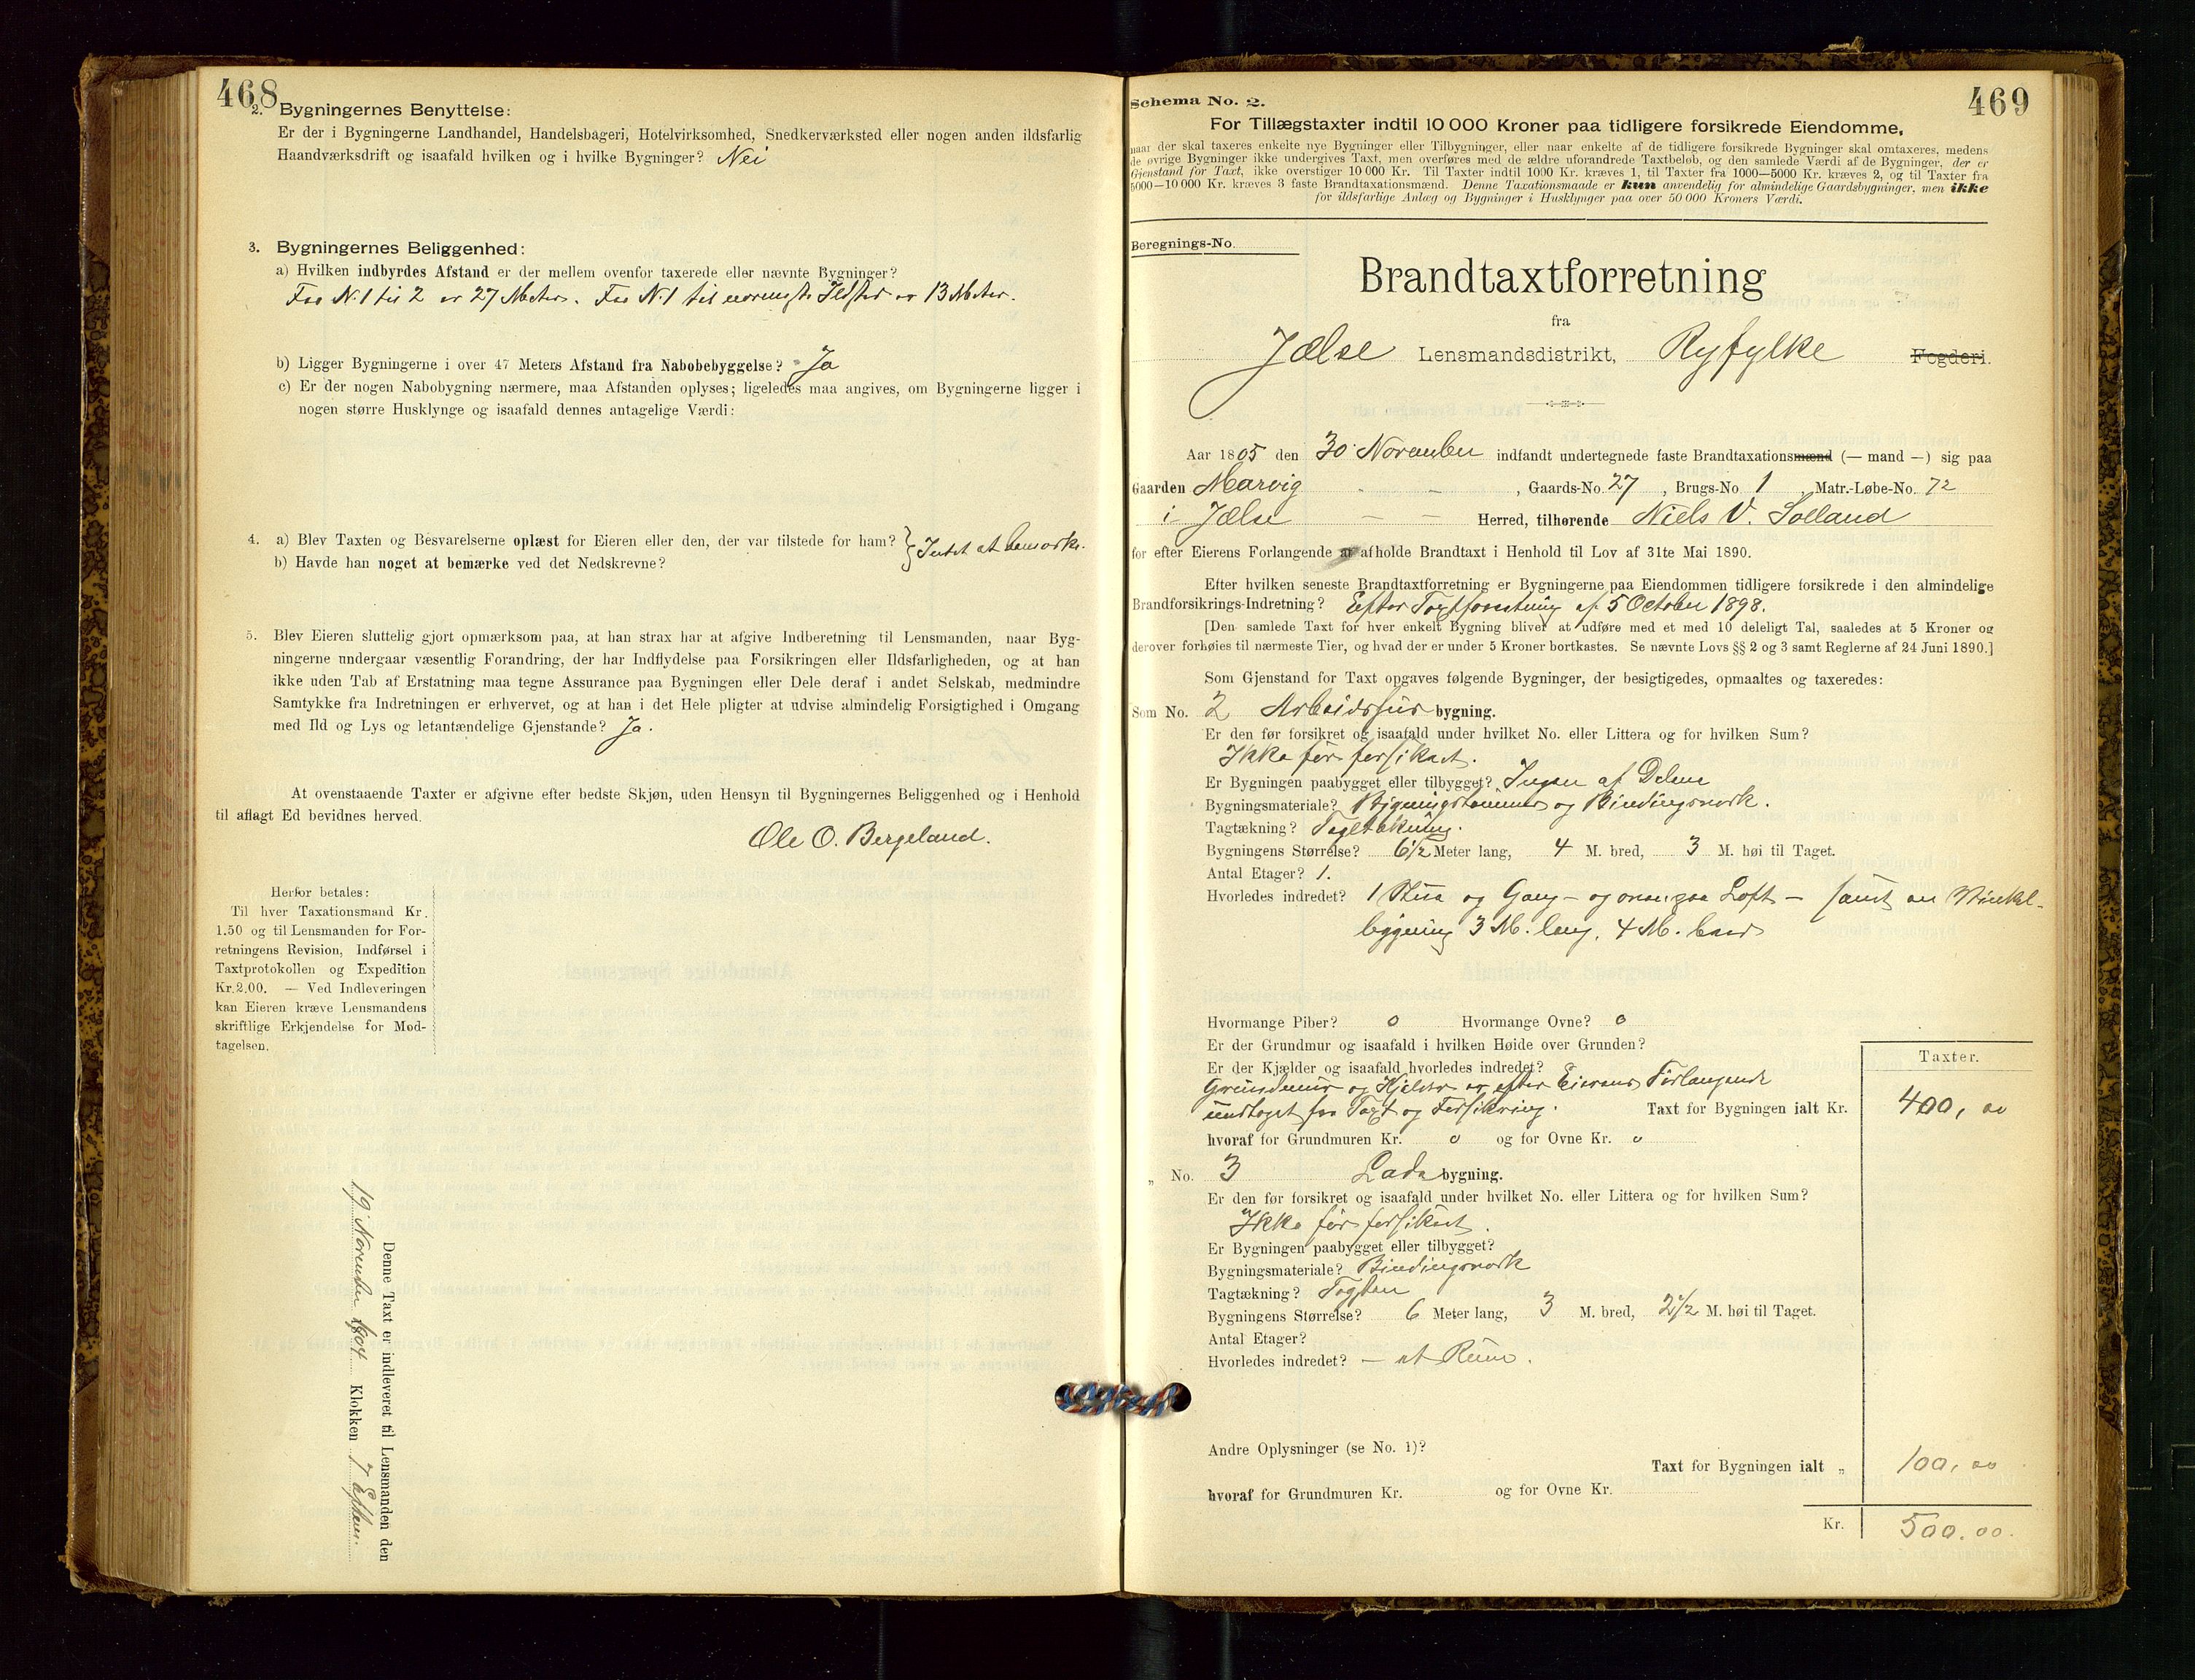 468
2. Bygningernes Benyttelse:
Er der i Bygningerne Landhandel, Handelsbageri, Hotelvirksomhed, Snedkerværksted eller nogen anden ildsfarlig
Haandværksdrift og isaafald hvilken og i hvilke Bygninger? Nei
3. Bygningernes Beliggenhed:
a) Hvilken indbyrdes Afstand er der mellem ovenfor taxerede eller nævnte Bygninger?
Fra N. 1 til 2 er 27 Meter. Fra N. 1 til nærmeste Ildsted er 13 Meter.
b) Ligger Bygningerne i over 47 Meters Afstand fra Nabobebyggelse? Ja
c) Er der nogen Nabobygning nærmere, maa Afstanden oplyses; ligeledes maa angives, om Bygningerne ligger i
nogen større Husklynge og isaafald dennes antagelige Værdi:
4. a) Blev Taxten og Besvarelserne oplæst for Eieren eller den, der var tilstede for ham? } Intet at bemærke.
b) Havde han noget at bemærke ved det Nedskrevne?
5. Blev Eieren sluttelig gjort opmærksom paa, at han strax har at afgive Indberetning til Lensmanden, naar Byg-
ningerne undergaar væsentlig Forandring, der har Indflydelse paa Forsikringen eller Ildsfarligheden, og at han
ikke uden Tab af Erstatning maa tegne Assurance paa Bygningen eller Dele deraf i andet Selskab, medmindre
Samtykke fra Indretningen er erhvervet, og at han i det Hele pligter at udvise almindelig Forsigtighed i Omgang
med Ild og Lys og letantændelige Gjenstande? Ja.
At ovenstaaende Taxter er afgivne efter bedste Skjøn, uden Hensyn til Bygningernes Beliggenhed og i Henhold
til aflagt Ed bevidnes herved.
Ole O. Bergeland.
Herfor betales:
Til hver Taxationsmand Kr.
1.50 og til Lensmanden for For-
retningens Revision, Indførsel i
Taxtprotokollen og Expedition
Kr. 2.00. — Ved Indleveringen
kan Eieren kræve Lensmandens
skriftlige Erkjendelse for Mod-
tagelsen.
Denne Taxt er indleveret til Lensmanden den
19 November 1904 Klokken 7 Efterm.
469
Schema No. 2.
For Tillægstaxter indtil 10 000 Kroner paa tidligere forsikrede Eiendomme,
naar der skal taxeres enkelte nye Bygninger eller Tilbygninger, eller naar enkelte af de tidligere forsikrede Bygninger skal omtaxeres, medens
de øvrige Bygninger ikke undergives Taxt, men overføres med de ældre uforandrede Taxtbeløb, og den samlede Værdi af de Bygninger, der er
Gjenstand for Taxt, ikke overstiger 10 000 Kr. Til Taxter indtil 1000 Kr. kræves 1, til Taxter fra 1000—5000 Kr. kræves 2, og til Taxter fra
5000—10 000 Kr. kræves 3 faste Brandtaxationsmænd. Denne Taxationsmaade er kun anvendelig for almindelige Gaardsbygninger, men ikke
for ildsfarlige Anlæg og Bygninger i Husklynger paa over 50 000 Kroners Værdi.
Beregnings-No.
Brandtaxtforretning
fra
Jælse Lensmandsdistrikt, Ryfylke Fogderi.
Aar 1805 den 30 November indfandt undertegnede faste Brandtaxationsmænd (— mand —) sig paa
Gaarden Marvig - - , Gaards-No. 27 , Brugs-No 1 Matr.-Løbe-No. 72
i Jælse — — Herred, tilhørende Niels V. Solland
for efter Eierens Forlangende at afholde Brandtaxt i Henhold til Lov af 31te Mai 1890.
Efter hvilken seneste Brandtaxtforretning er Bygningerne paa Eiendommen tidligere forsikrede i den almindelige
Brandforsikrings-Indretning? Efter Taxtforretning af 5 October 1898.
[Den samlede Taxt for hver enkelt Bygning bliver at udføre med et med 10 deleligt Tal, saaledes at 5 Kroner og
derover forhøies til nærmeste Tier, og hvad der er under 5 Kroner bortkastes. Se nævnte Lovs §§ 2 og 3 samt Reglerne af 24 Juni 1890.]
Som Gjenstand for Taxt opgaves følgende Bygninger, der besigtigedes, opmaaltes og taxeredes:
Som No. 2 Arbeidshus bygning.
Er den før forsikret og isaafald under hvilket No. eller Littera og for hvilken Sum?
Ikke før forsikret.
Er Bygningen paabygget eller tilbygget? Ingen af Delene
Bygningsmateriale? Bygningstømmer og Bindingsverk.
Tagtækning? Tagltækning.
Bygningens Størrelse? 6 1/2 Meter lang, 4 M. bred, 3 M. høi til Taget.
Antal Etager? 1.
Hvorledes indredet? 1 Stua og Gang — og ovenpaa Loft — samt en Vinkel-
bygning 3 M. lang, 4 M. bred
Hvormange Piber? 0 Hvormange Ovne? 0
Er der Grundmur og isaafald i hvilken Høide over Grunden?
Er der Kjælder og isaafald hvorledes indredet?
Grundmur og Kjelder er efter Eierens Forlangende
undtaget fra Taxt og Forsikring. Taxt for Bygningen ialt Kr.
Taxter.
400, 00
hvoraf for Grundmuren Kr. 0 og for Ovne Kr. 0
„ No. 3 Lade bygning.
Er den før forsikret og isaafald under hvilket No. eller Littera og for hvilken Sum?
Ikke før forsikret.
Er Bygningen paabygget eller tilbygget?
Bygningsmateriale? Bindingsverk
Tagtækning? Tagsten
Bygningens Størrelse? 6 Meter lang, 3 M. bred, 2 1/2 M. høi til Taget.
Antal Etager?
Hvorledes indredet? — et Rum.
Andre Oplysninger (se No. 1)?
Taxt for Bygningen ialt „ 100, 00
hvoraf for Grundmuren Kr. og for Ovne Kr.
Kr. 500.00.